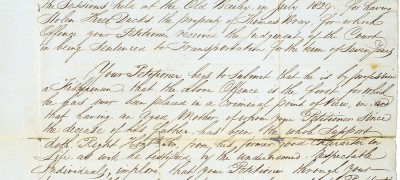 the Sessions held at the Old Bailey, in July 1829, for having
Stolen three Ducks the property of Thomas Wray, for which
Offence your Petitioner received the Judgment of the Court
in being Sentenced to Transportation for the term of Seven Years
Your Petitioner begs to Submit that he is by profession
a that the above Offence is the fourth for which
he has ever been placed in a Criminal point of View, in
that having an Aged Mother, of whom your Petitioner since
the decease of his Father, has been the whole Support
doth Right Honble Sir, from his former good Character in
Life as will be testified by the undernamed respectable
Individuals, implore, that your Petitioner through your